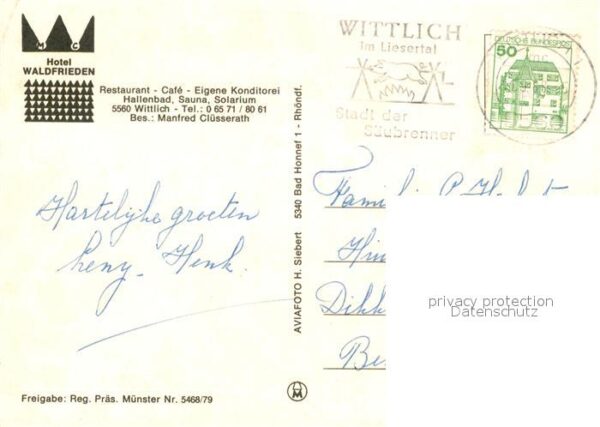 M C
Hotel
WALDFRIEDEN
Restaurant - Café - Eigene Konditorei
Hallenbad, Sauna, Solarium
5560 Wittlich - Tel.: 0 65 71 / 80 61
Bes.: Manfred Clüsserath
WITTLICH
im Liesertal
Stadt der
Säubrenner
50
DEUTSCHE BUNDESPOST
Hartelijke groeten
Heny - Henk.
AVIAFOTO H. Siebert 5340 Bad Honnef 1 - Rhöndf.
Famil
Dikk
privacy protection
Datenschutz
Freigabe: Reg. Präs. Münster Nr. 5468/79